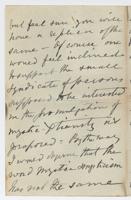 but feel sure you will
have a replica of the
same - Of course one
would feel inclined
to support the small
Syndicate of persons
supposed to be interested
in the promulgation of
mystic Xtianity as
proposed - By the way
I would opine that the
word Mystic
has not the same